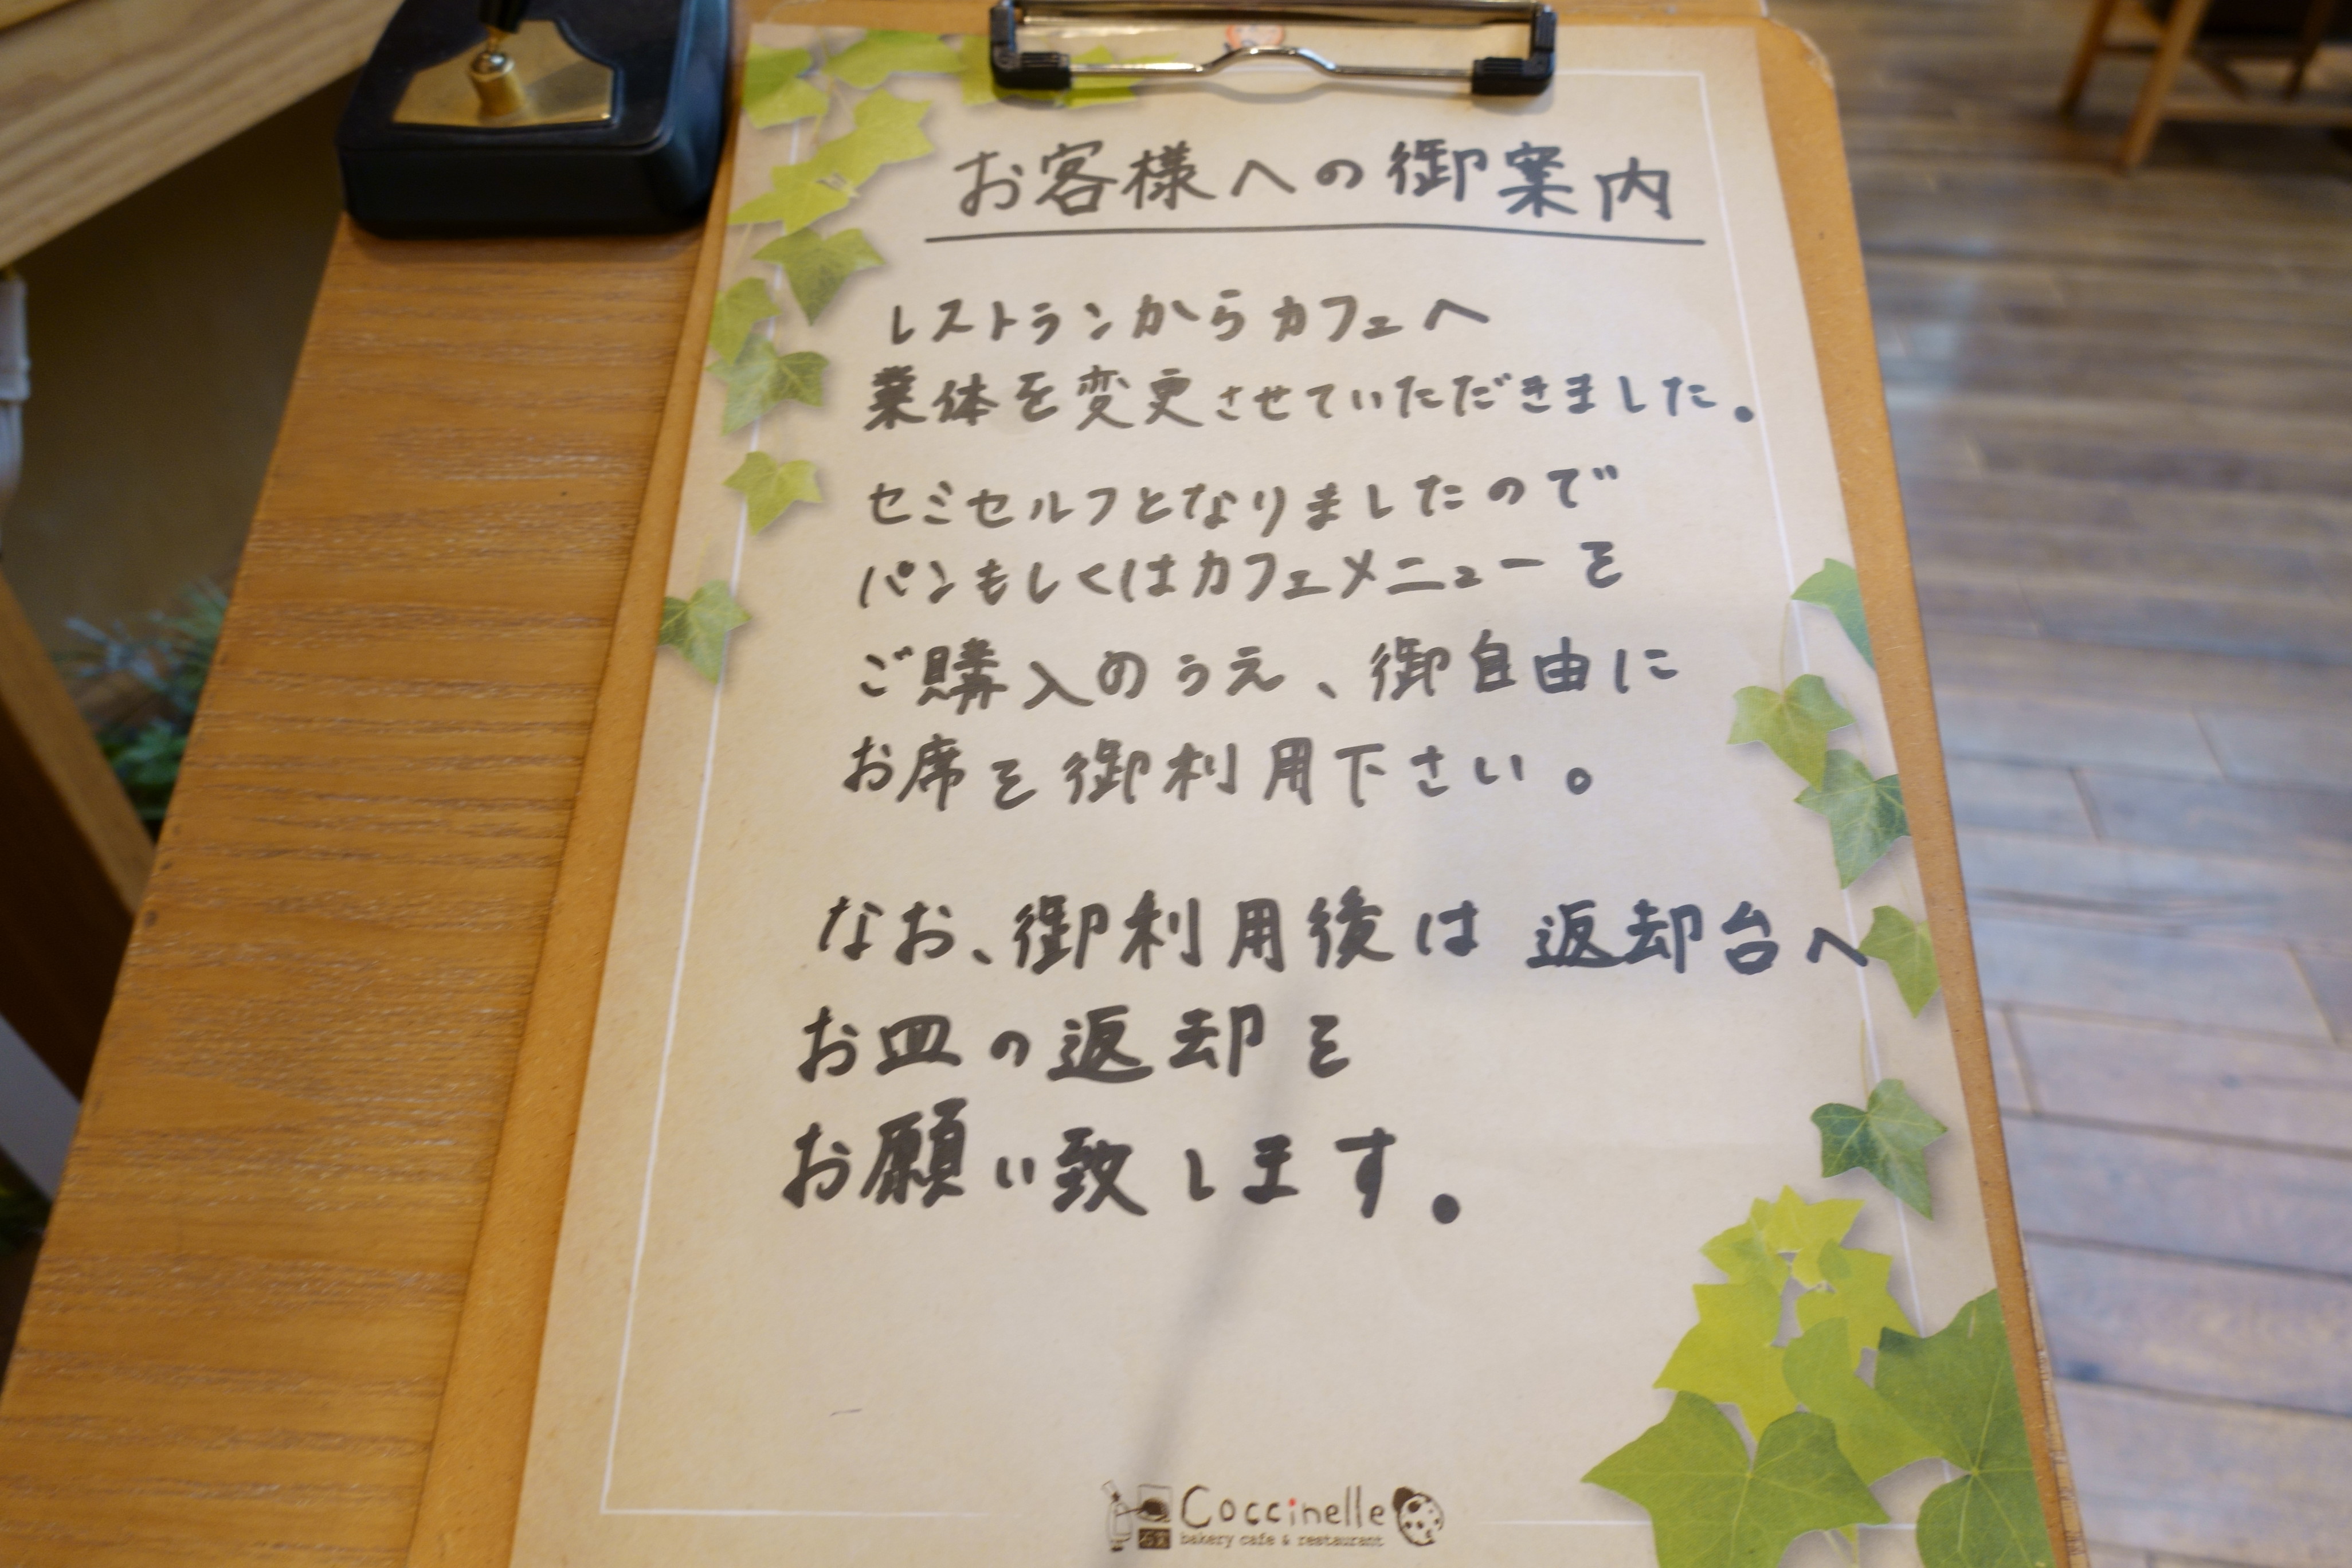 お客様への御案内
レストランからカフェへ
業体を変更させていただきました。
セミセルフとなりましたので
パンもしくはカフェメニューを
ご購入のうえ、御自由に
お席を御利用下さい。
なお、御利用後は 返却台へ
お皿の返却を
お願い致します。
Coccinelle
bakery cafe & restaurant